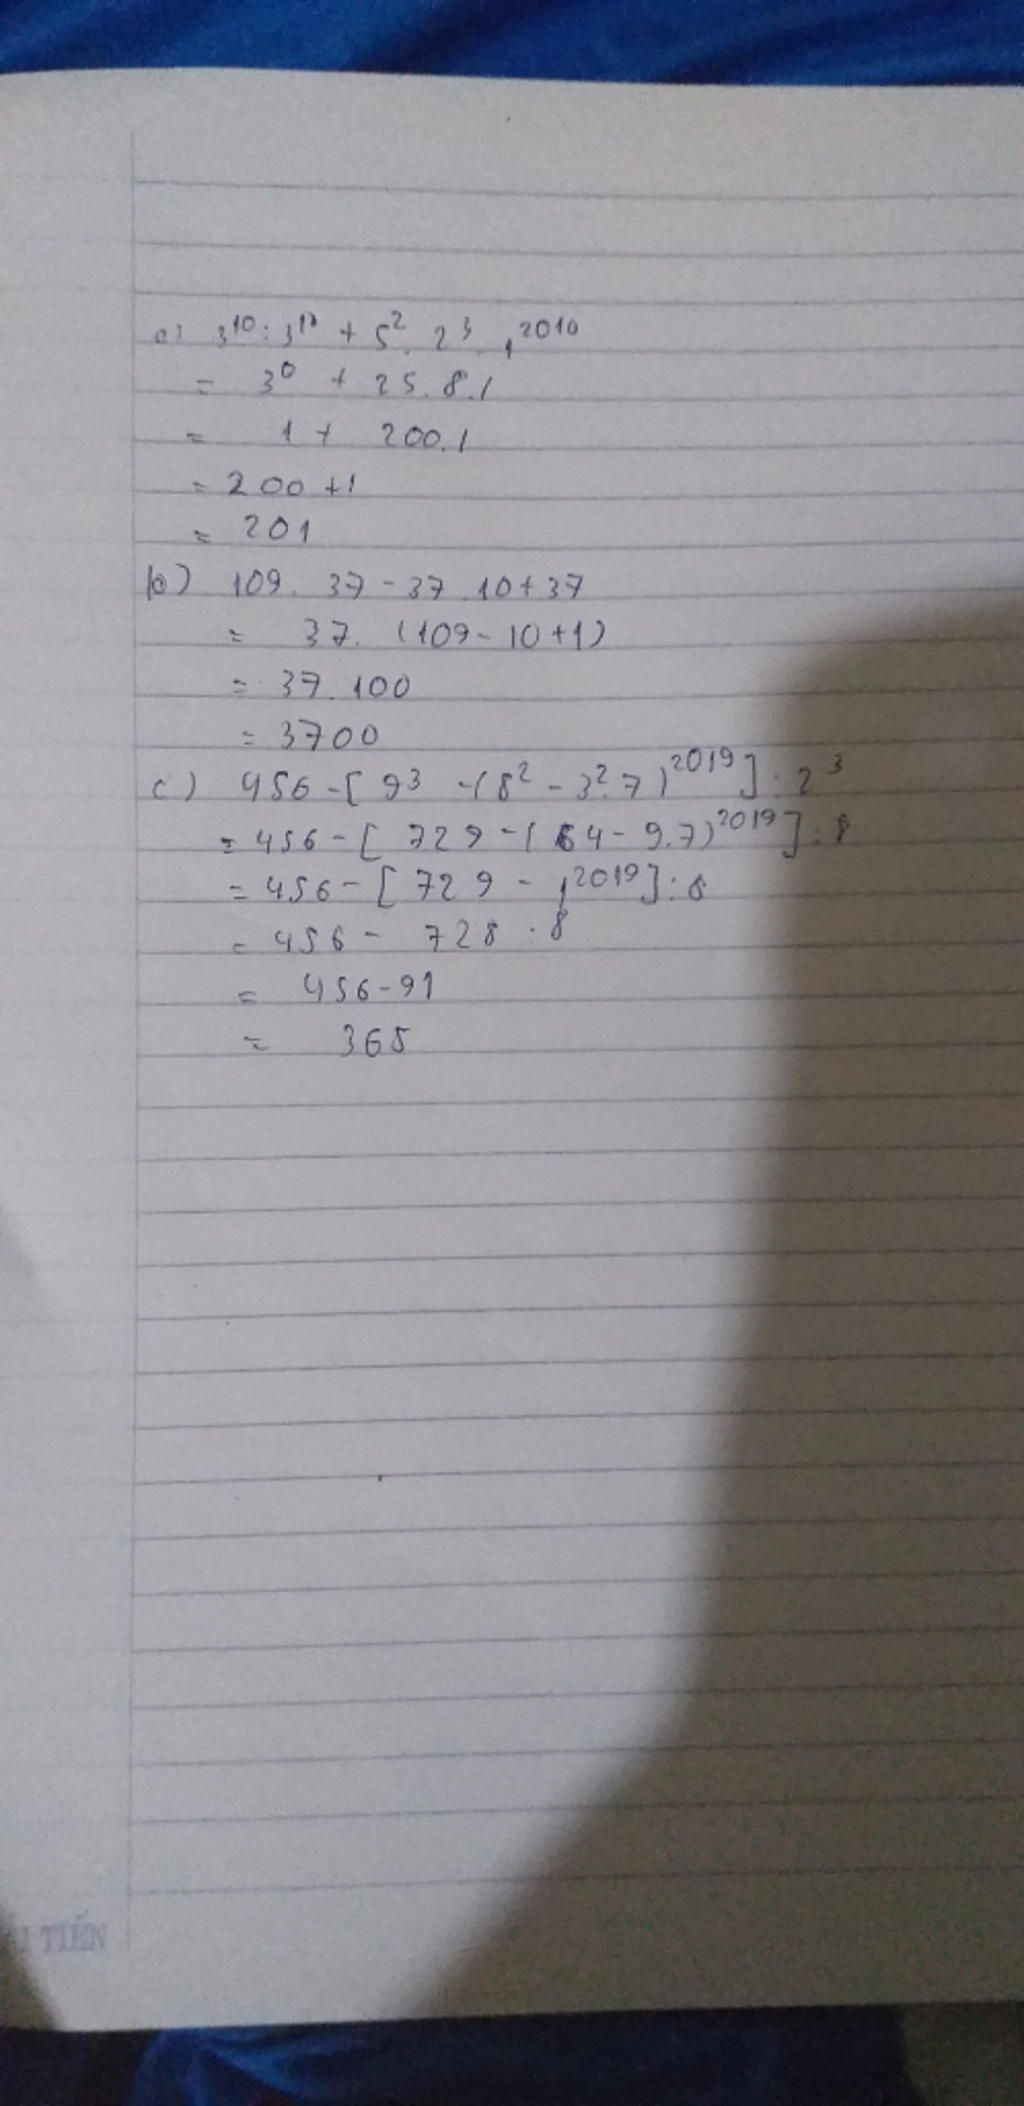 a) 3¹⁰:3¹⁰ + 5². 2³. 1²⁰¹⁰
= 3⁰ + 25.8.1
= 1 + 200.1
= 200 +1
= 201
b) 109. 37 - 37.10 + 37
= 37. (109 - 10 + 1)
= 37.100
= 3700
c) 456 - [ 9³ - (8² - 3².7)²⁰¹⁹] : 2³
= 456 - [ 729 - ( 64 - 9.7)²⁰¹⁹] : 8
= 456 - [ 729 - 1²⁰¹⁹] : 8
= 456 - 728 : 8
= 456 - 91
= 365
TIẾN